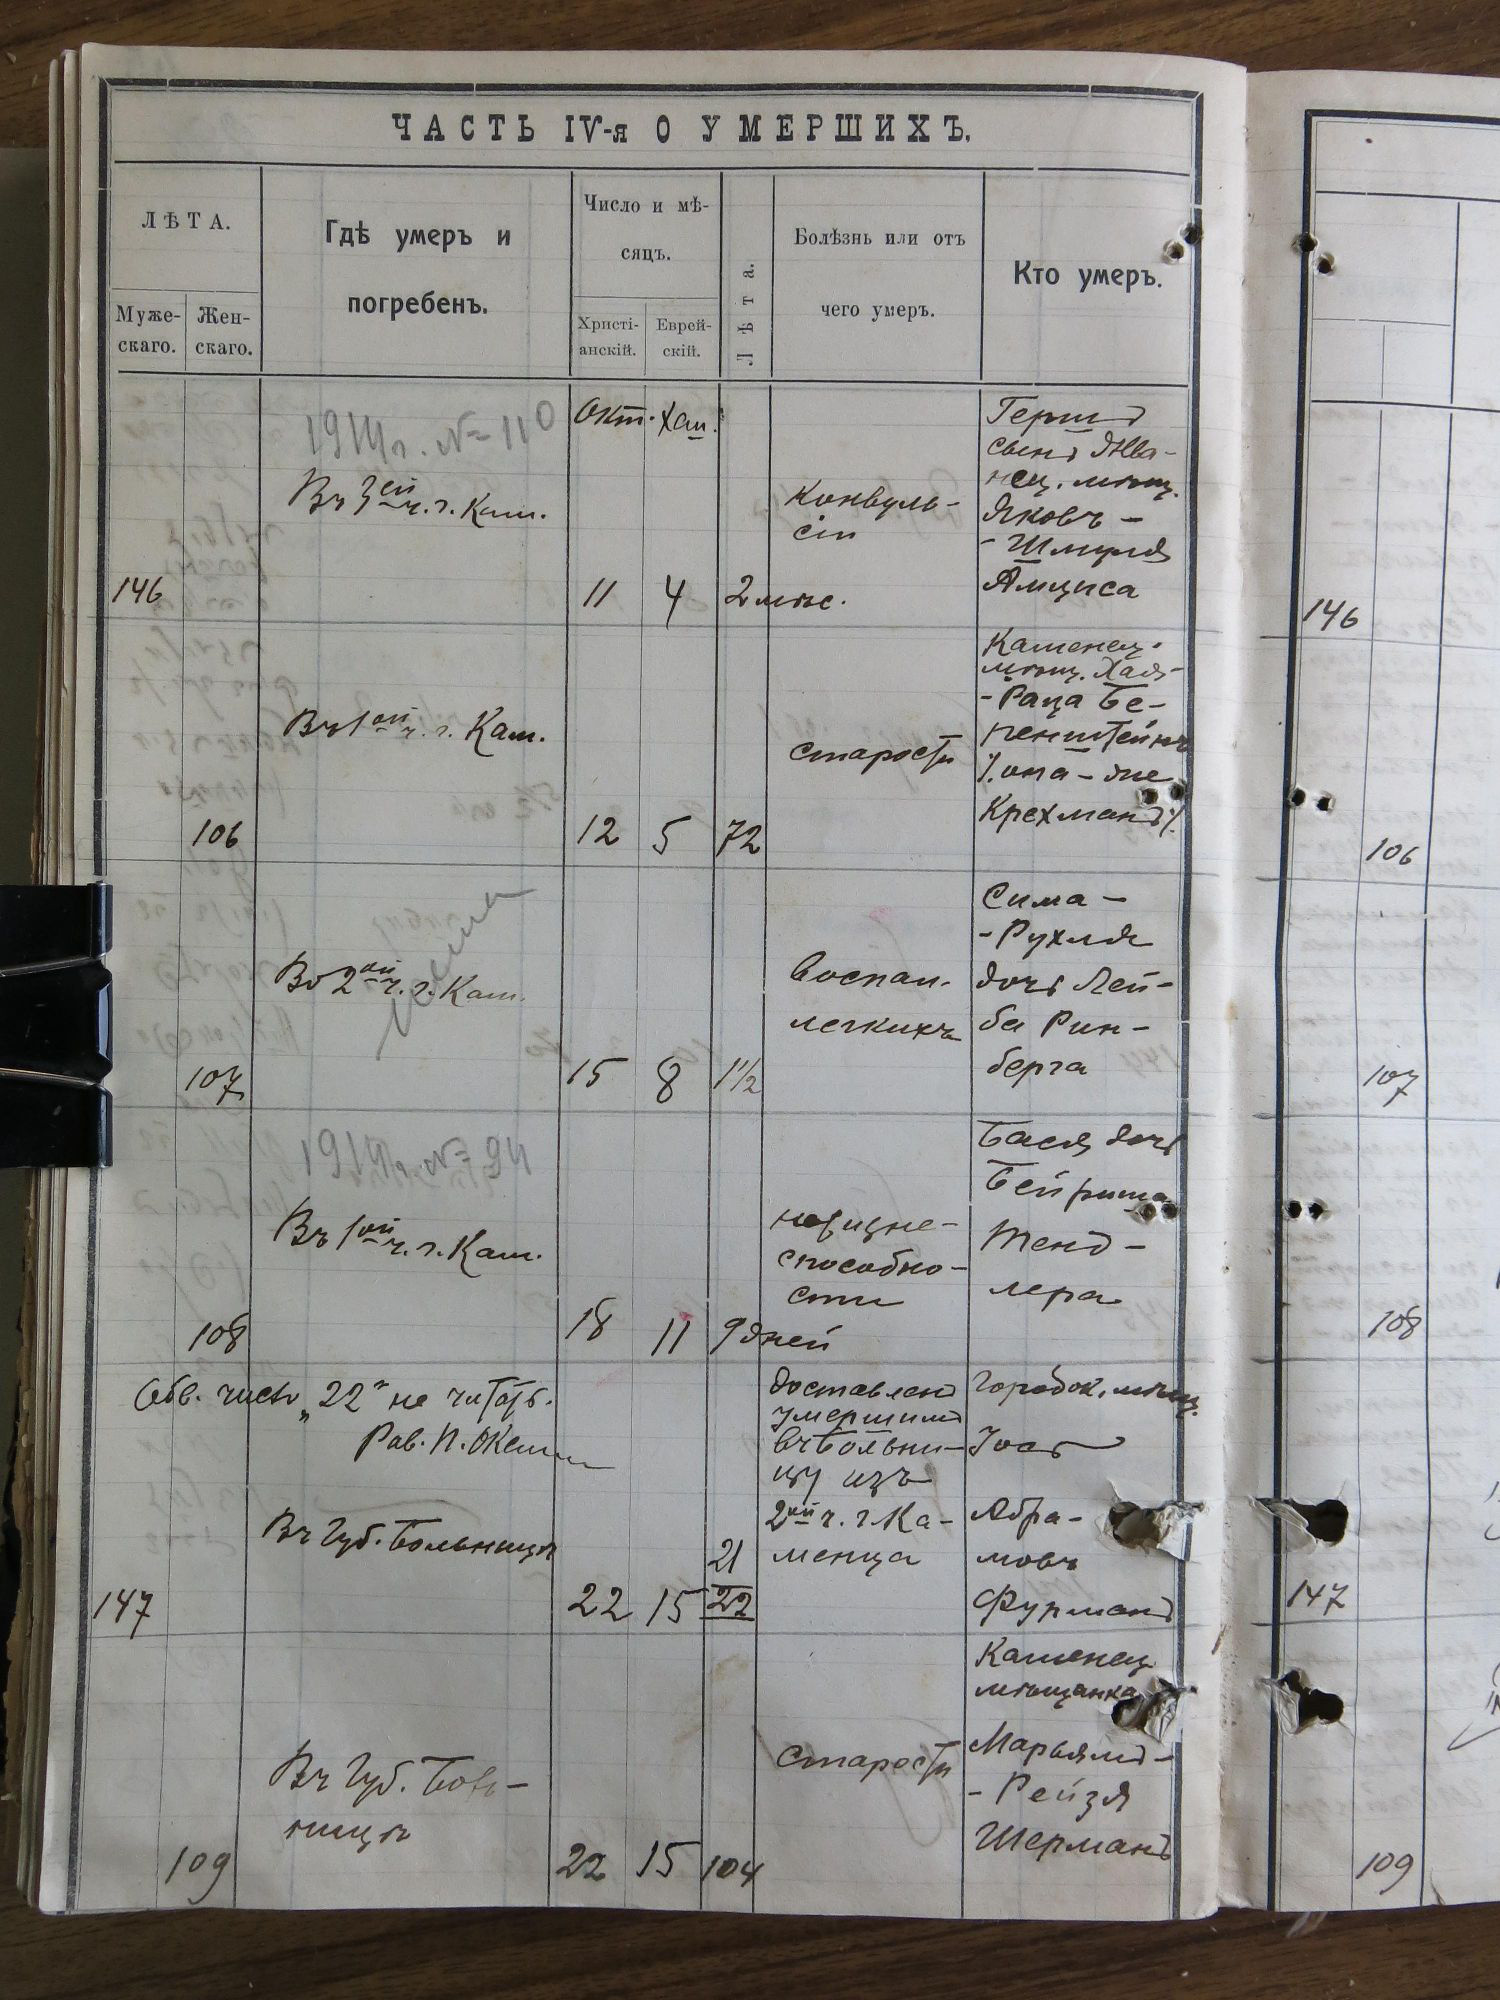 ЧАСТЬ IV-я О УМЕРШИХЪ.
ЛѢТА.
Муже-
скаго.
Жен-
скаго.
Гдѣ умеръ и
погребенъ.
Число и мѣ-
сяцъ.
Христі-
анскій.
Еврей-
скій.
Лѣта.
Болѣзнь или отъ
чего умеръ.
Кто умеръ.
1914 г. № 110
Окт. Хеш.
Въ 3ей ч. г. Кам.
146
11
4
2 мѣс.
конвуль-
сіи
Герш
сынъ Жва-
нец. мѣщ.
Яковъ -
- Шмуля
Амциса
Въ 1ой ч. г. Кам.
106
12
5
72
старости
Каменец.
мѣщ. Хая-
- Раца Бе-
ренштейнъ
/. она-же
Крехманъ /.
Во 2ой ч. г. Кам.
107
15
8
1 1/2
воспал.
легкихъ
Сима -
- Рухля
дочь Лей-
ба Рин-
берга
1914 г. № 94
Въ 1ой ч. г. Кам.
108
18
11
9 дней
нежизне-
способно-
сти
Бася дочь
Бейриша
Тенд-
лера
число „22" не читать.
Рав. П. Окс
Въ Губ. Больницѣ
147
22
15
21
22
доставленъ
умершимъ
въ больни-
цу изъ
2ой ч. г. Ка-
менца
Городок. мѣщ.
Абра-
мовъ
Фурманъ
Въ Губ. Боль-
ницѣ
109
22
15
104
старости
Каменец.
мѣщанка
Марьямъ-
- Рейзя
Шерманъ
146
106
107
108
147
109